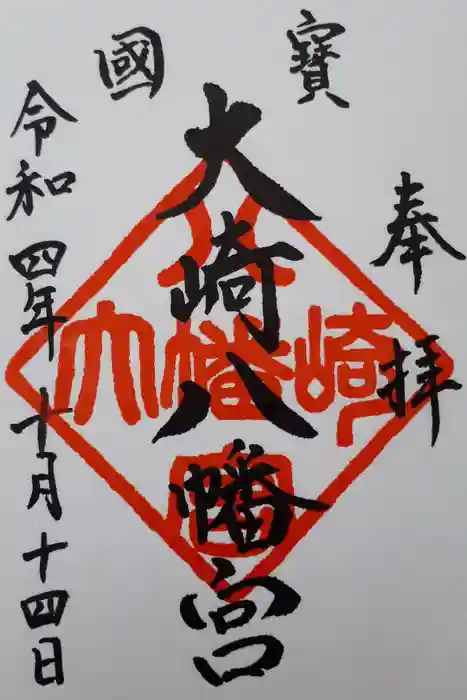 奉拝
國寶
大崎八幡宮
大崎八幡宮
令和四年十月十四日